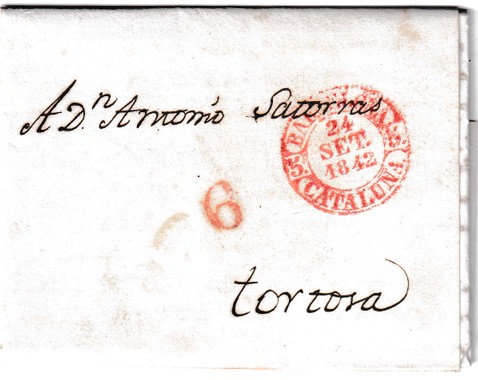 A Dn. Antonio Satorras
24
SET.
1842
CATALUÑA
6
tortosa